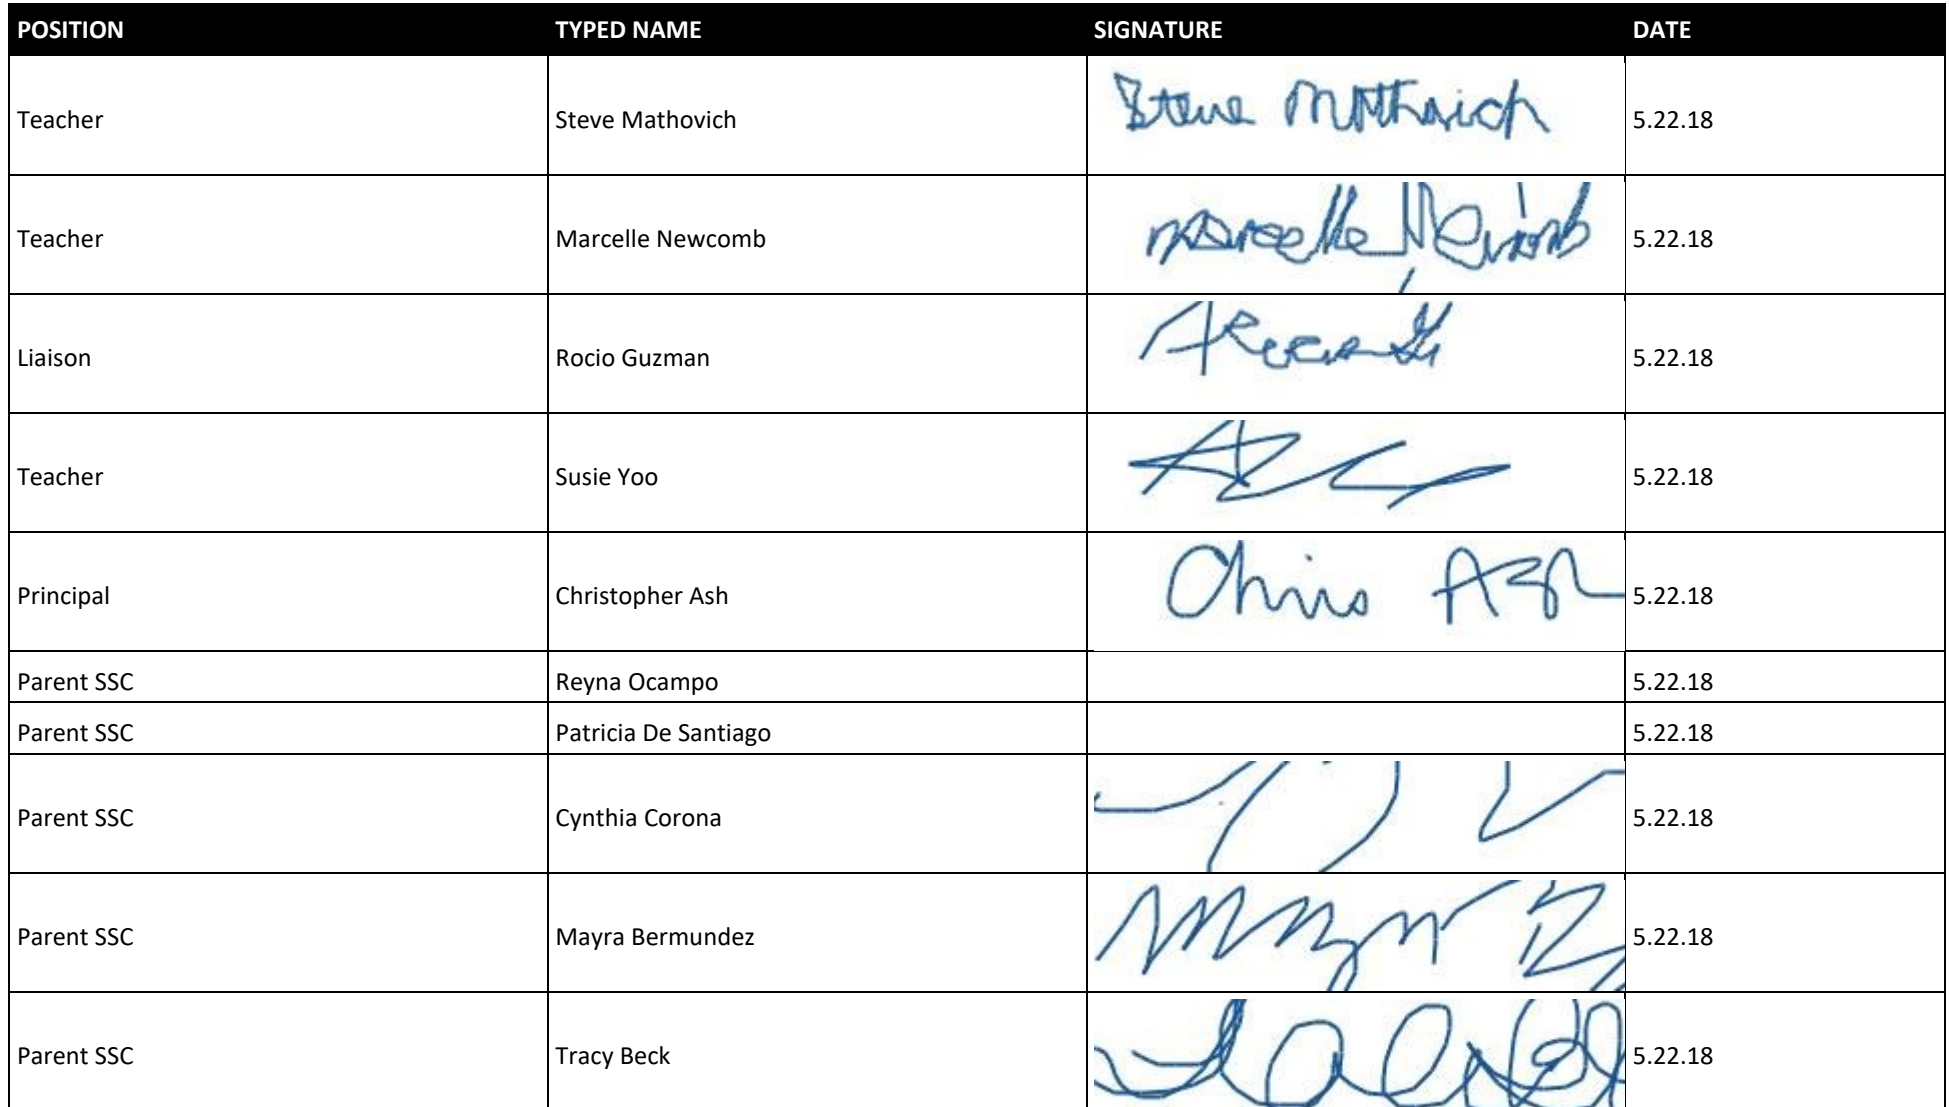 POSITION TYPED NAME SIGNATURE DATE
Teacher Steve Mathovich Steve Mathovich 5.22.18
Teacher Marcelle Newcomb Marcelle Newcomb 5.22.18
Liaison Rocio Guzman 5.22.18
Teacher Susie Yoo 5.22.18
Principal Christopher Ash Chris Ash 5.22.18
Parent SSC Reyna Ocampo 5.22.18
Parent SSC Patricia De Santiago 5.22.18
Parent SSC Cynthia Corona 5.22.18
Parent SSC Mayra Bermundez 5.22.18
Parent SSC Tracy Beck 5.22.18